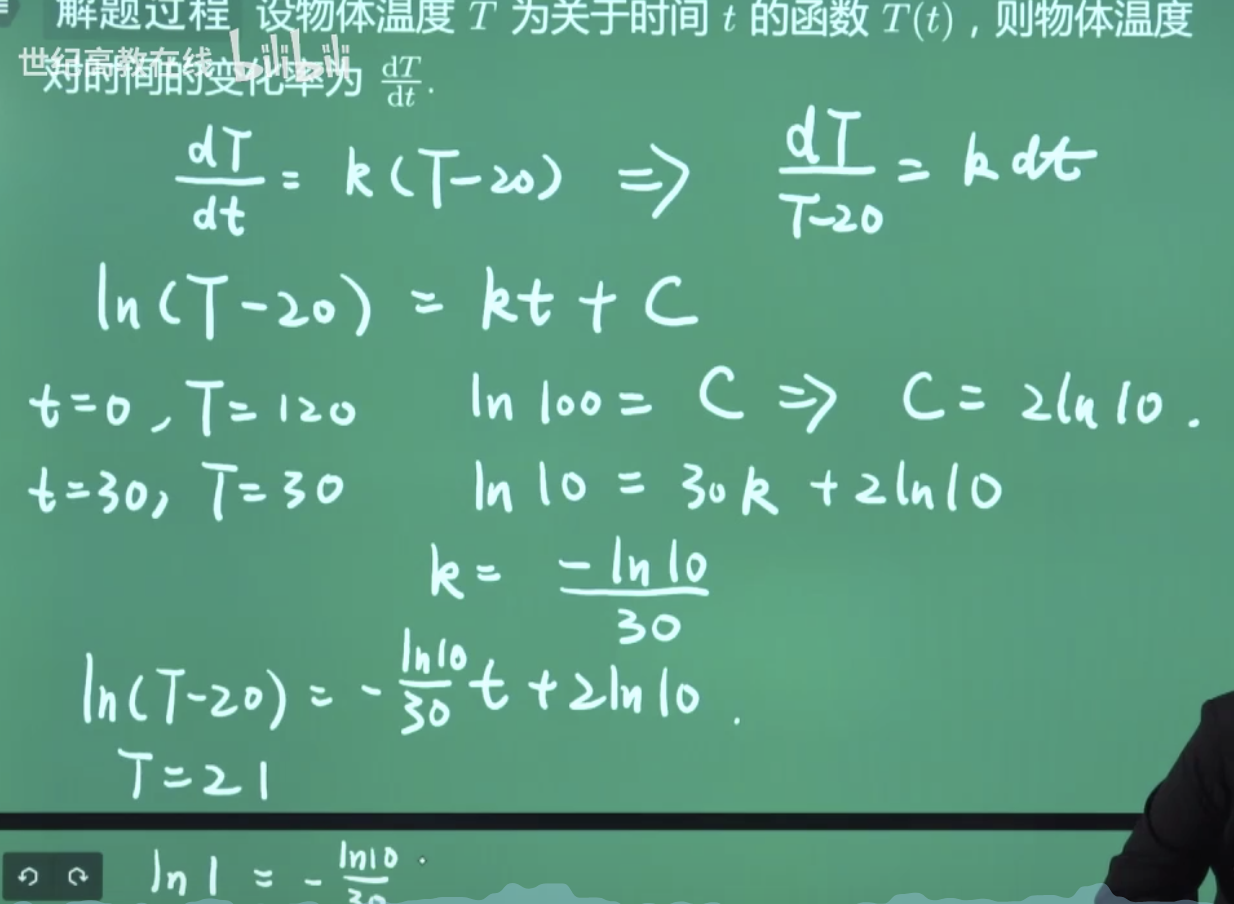 解题过程 设物体温度 T 为关于时间 t 的函数 T(t)，则物体温度
世纪高教在线 bilibili
对时间的变化率为 dT/dt.
dT/dt = k(T-20) => dT/(T-20) = k dt
ln(T-20) = kt + C
t=0, T=120 ln 100 = C => C = 2ln 10.
t=30, T=30 ln 10 = 30k + 2ln10
k = -ln 10/30
ln(T-20) = - ln10/30 t + 2ln 10.
T=21
ln 1 = - ln10/30